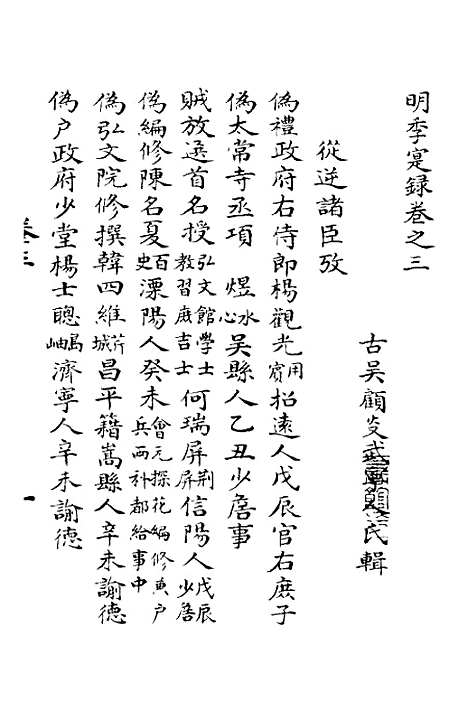 明季寔録卷之三
古吳顧炎武寧人氏輯
從逆諸臣攷
偽禮政府右侍郎楊觀光用賓招遠人戊辰官右庶子
偽太常寺丞項煜水心吳縣人乙丑少詹事
賊放逆首名授弘文館學士教習庶吉士何瑞屏荊屏信陽人戊辰少詹
偽編修陳名夏百史溧陽人癸未會元探花編修兼戶兵兩科都給事中
偽弘文院修撰韓四維芹城昌平籍嵩縣人辛未諭德
偽户政府少堂楊士聰鳧岫濟寧人辛未諭德
卷三
一